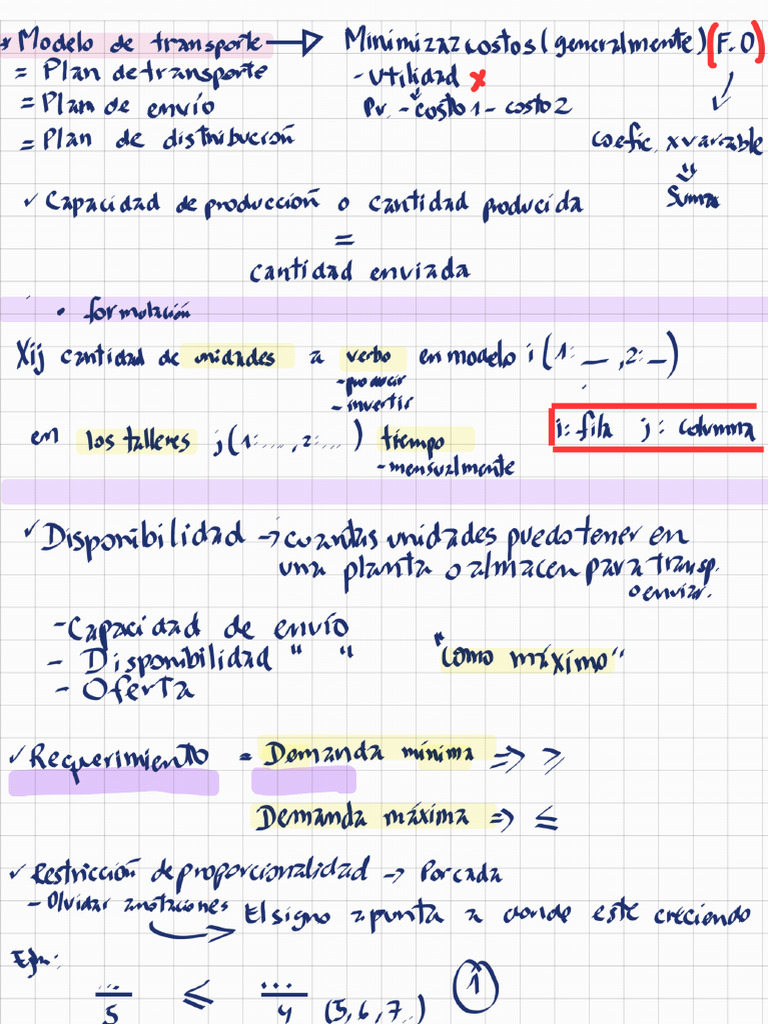 * Modelo de transporte → Minimizar costos (generalmente) (F.O)
= Plan de transporte
- Utilidad x
= Plan de envío
Pv. - costo 1 - costo 2
= Plan de distribución
coefic. x variable
"
Suma
✓ Capacidad de producción o cantidad producida
=
cantidad enviada
• formulación
Xij cantidad de unidades a verbo en modelo i (1: __ , 2: __)
- producir
- invertir
en los talleres j (1: ..., 2: ... ) tiempo
- mensualmente
i: fila j: columna
✓ Disponibilidad → cuantas unidades puedo tener en
una planta o almacen para transp.
o enviar.
- Capacidad de envío
- Disponibilidad " "
"como máximo"
- Oferta
✓ Requerimiento = Demanda mínima => ≥
Demanda máxima => ≤
✓ Restricción de proporcionalidad → Por cada
- Olvidar anotaciones → El signo apunta a donde este creciendo
Ejm:
.../5 ≤ .../4 (5, 6, 7..) 1